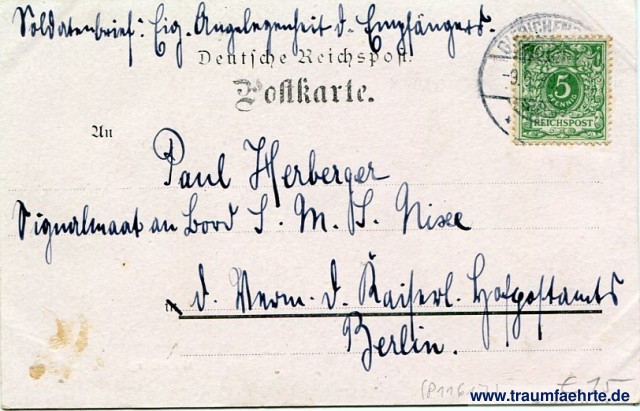 Soldatenbrief: Eig. Angelegenheit d. Empfängers.
Deutsche Reichspost.
Postkarte.
5
PFENNIG
REICHSPOST
An
Paul Herberger
Signalmaat an Bord S. M. S. Nixe
d. Verm. d. Kaiserl. Hofpostamts
in
Berlin.
www.traumfaehrte.de